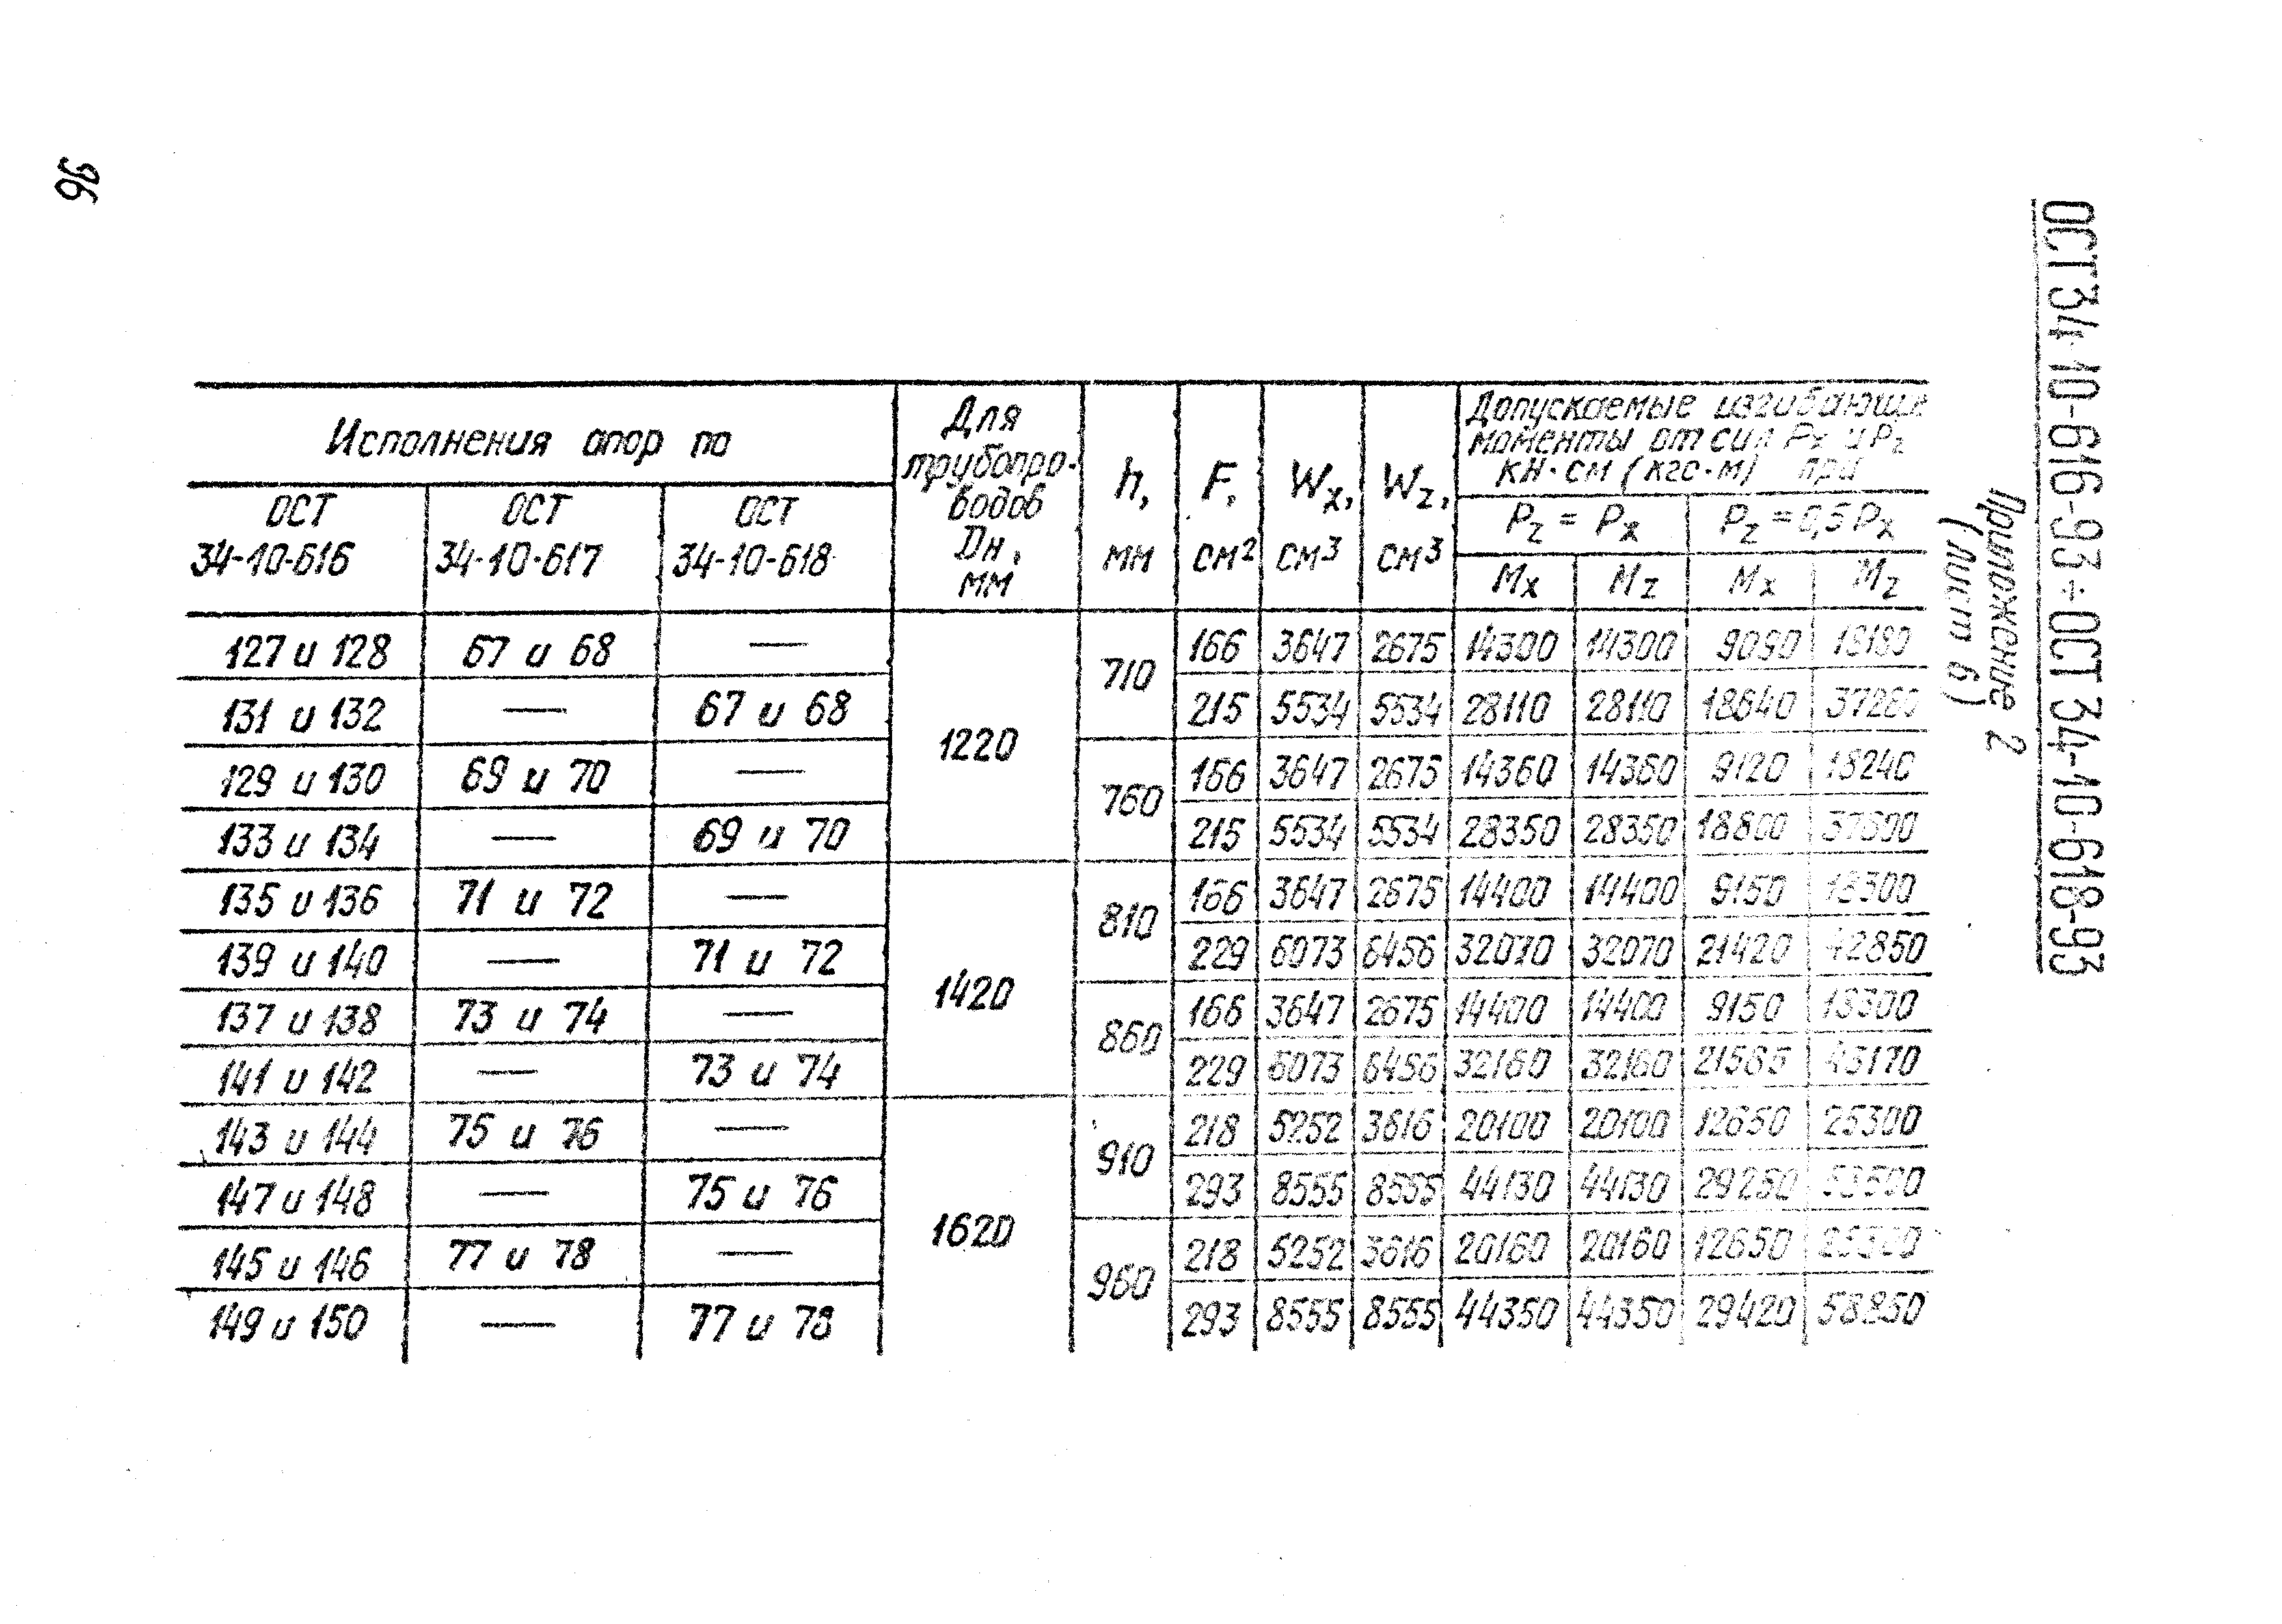 96
ОСТ 34-10-616-93÷ОСТ 34-10-618-93
Приложение 2
(лист 6)
Исполнения опор по
ОСТ 34-10-616
ОСТ 34-10-617
ОСТ 34-10-618
Для трубопро-
водов
Dн,
мм
h,
мм
F,
см²
Wx,
см³
Wz,
см³
Допускаемые изгибающие
моменты от сил Px и Pz
кН·см (кгс·м) при
Pz = Px
Pz = 0,5 Px
Mx Mz Mx Mz
127 и 128 67 и 68 — 1220 710 166 3647 2675 14300 14300 9090 18180
131 и 132 — 67 и 68 215 5534 5534 28110 28110 18640 37280
129 и 130 69 и 70 — 760 166 3647 2675 14360 14360 9120 18240
133 и 134 — 69 и 70 215 5534 5534 28350 28350 18800 37600
135 и 136 71 и 72 — 1420 810 166 3647 2675 14400 14400 9150 18300
139 и 140 — 71 и 72 229 6073 6456 32070 32070 21420 42850
137 и 138 73 и 74 — 860 166 3647 2675 14400 14400 9150 18300
141 и 142 — 73 и 74 229 6073 6456 32160 32160 21585 43170
143 и 144 75 и 76 — 1620 910 218 5252 3616 20100 20100 12650 25300
147 и 148 — 75 и 76 293 8555 8555 44130 44130 29250
145 и 146 77 и 78 — 960 218 5252 3616 20160 20160 12650 25300
149 и 150 — 77 и 78 293 8555 8555 44350 44350 29420 58850